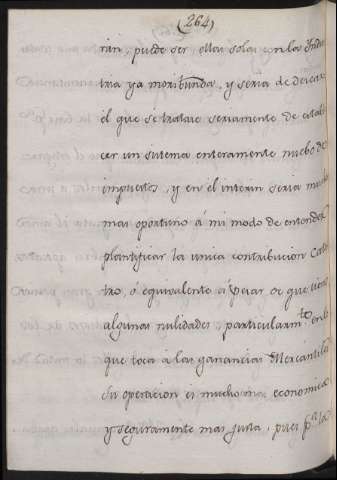 (264)
rán, puede ser ellas solas con la Indus
tria ya moribunda, y seria de desear
el que se tratase seriamente de estable
cer un sistema enteramente nuebo de
impuestos, y en el interin seria mucho
mas oportuno á mi modo de entender
plantificar la unica contribucion Catas
tro, ó equivalente á pesar de que tiene
algunas nulidades, particularmte en lo
que toca a las ganancias Mercantiles
su operacion es mucho mas economica
y seguramente mas justa, pues pr la